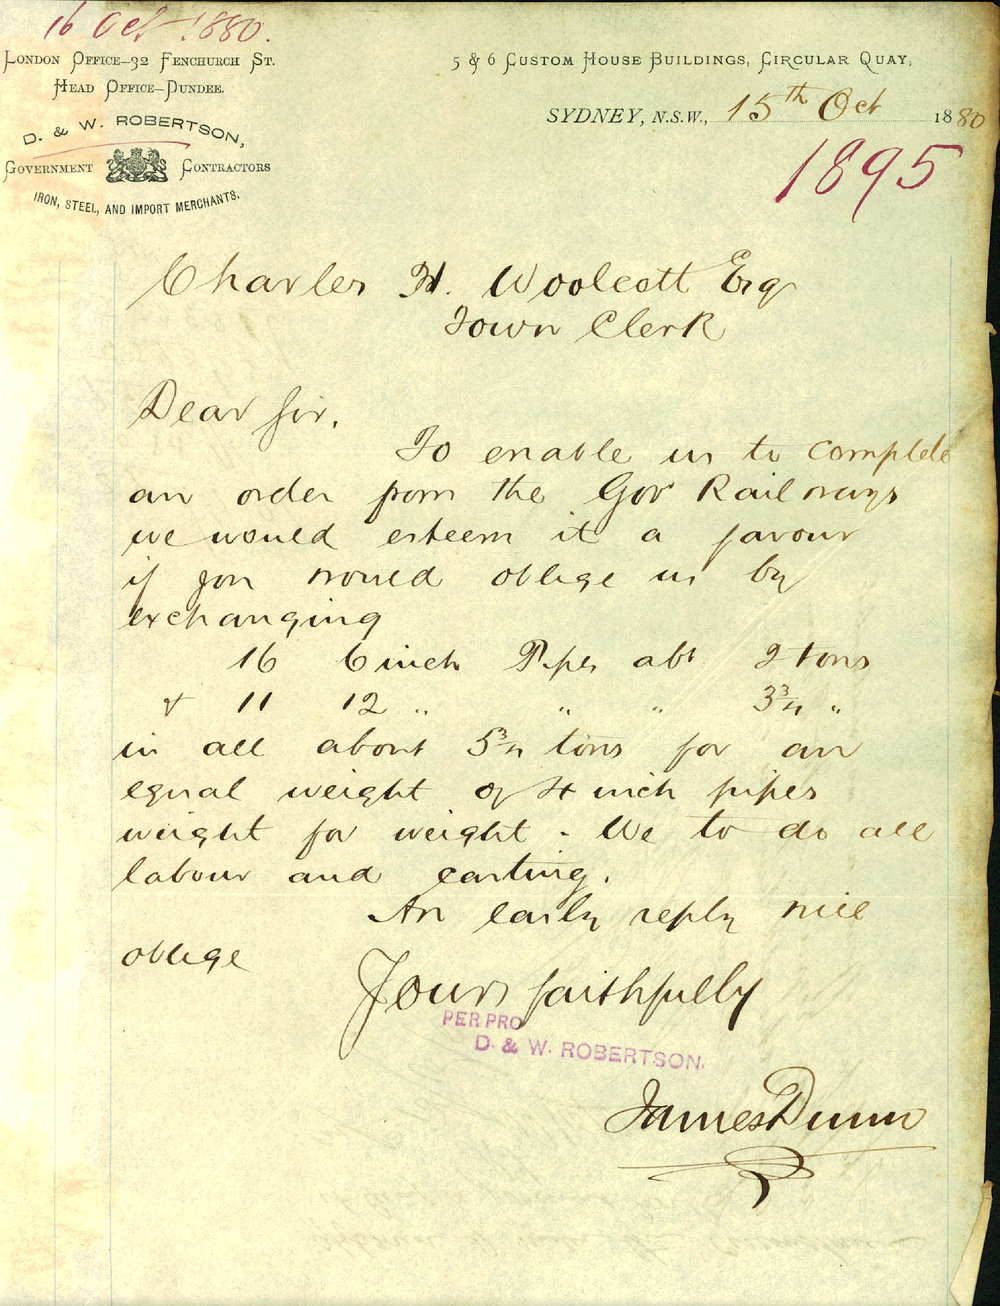 16 Oct 1880.
London Office–32 Fenchurch St.
Head Office–Dundee.
D. & W. Robertson,
Government Contractors
Iron, Steel, and Import Merchants.
5 & 6 Custom House Buildings, Circular Quay,
Sydney, N.S.W., 15th Oct 1880
1895
Charles H. Woolcott Esq
Town Clerk
Dear Sir,
To enable us to complete
an order from the Gov Railways
we would esteem it a favour
if you would oblige us by
exchanging
16 6 inch Pipes abt 2 tons
& 11 12 " " " 3¾ "
in all about 5¾ tons for an
equal weight of 4 inch pipes
weight for weight. We to do all
labour and carting.
An early reply will
oblige
Yours faithfully
PER PRO
D. & W. ROBERTSON.
James Dunn